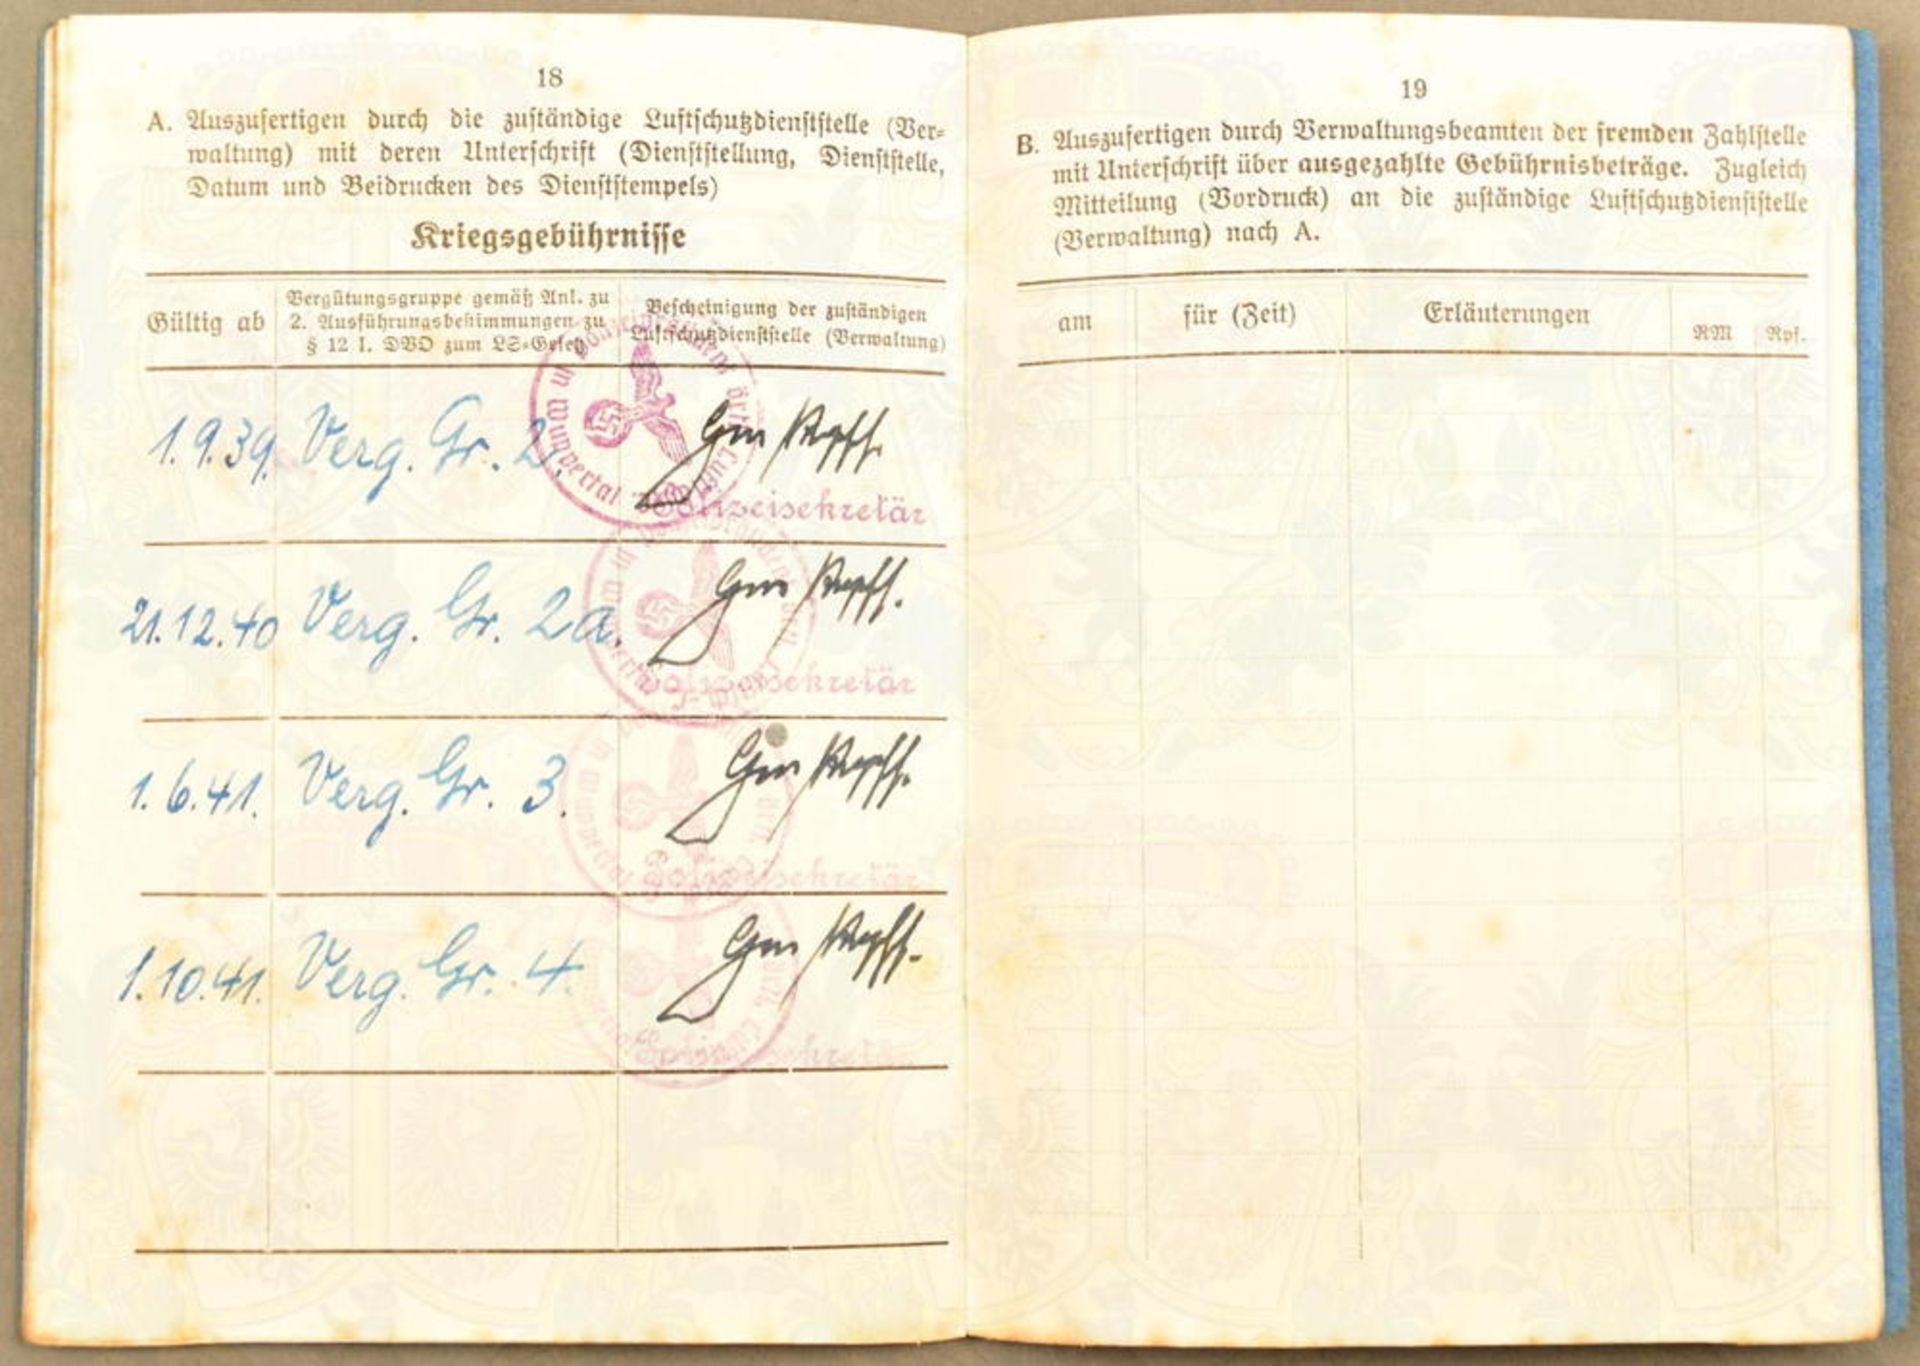 18
A. Auszufertigen durch die zuständige Luftschutzdienststelle (Ver-
waltung) mit deren Unterschrift (Dienststellung, Dienststelle,
Datum und Beidrucken des Dienststempels)
Kriegsgebührnisse
Gültig ab
Vergütungsgruppe gemäß Anl. zu
2. Ausführungsbestimmungen zu
§ 12 I. DVO zum LS-Gesetz
Bescheinigung der zuständigen
Luftschutzdienststelle (Verwaltung)
1.9.39. Verg. Gr. 2.
Polizeisekretär
21.12.40 Verg. Gr. 2a.
Polizeisekretär
1.6.41. Verg. Gr. 3.
Polizeisekretär
1.10.41. Verg. Gr. 4.
Polizeisekretär
19
B. Auszufertigen durch Verwaltungsbeamten der fremden Zahlstelle
mit Unterschrift über ausgezahlte Gebührnisbeträge. Zugleich
Mitteilung (Vordruck) an die zuständige Luftschutzdienststelle
(Verwaltung) nach A.
am für (Zeit) Erläuterungen RM Rpf.